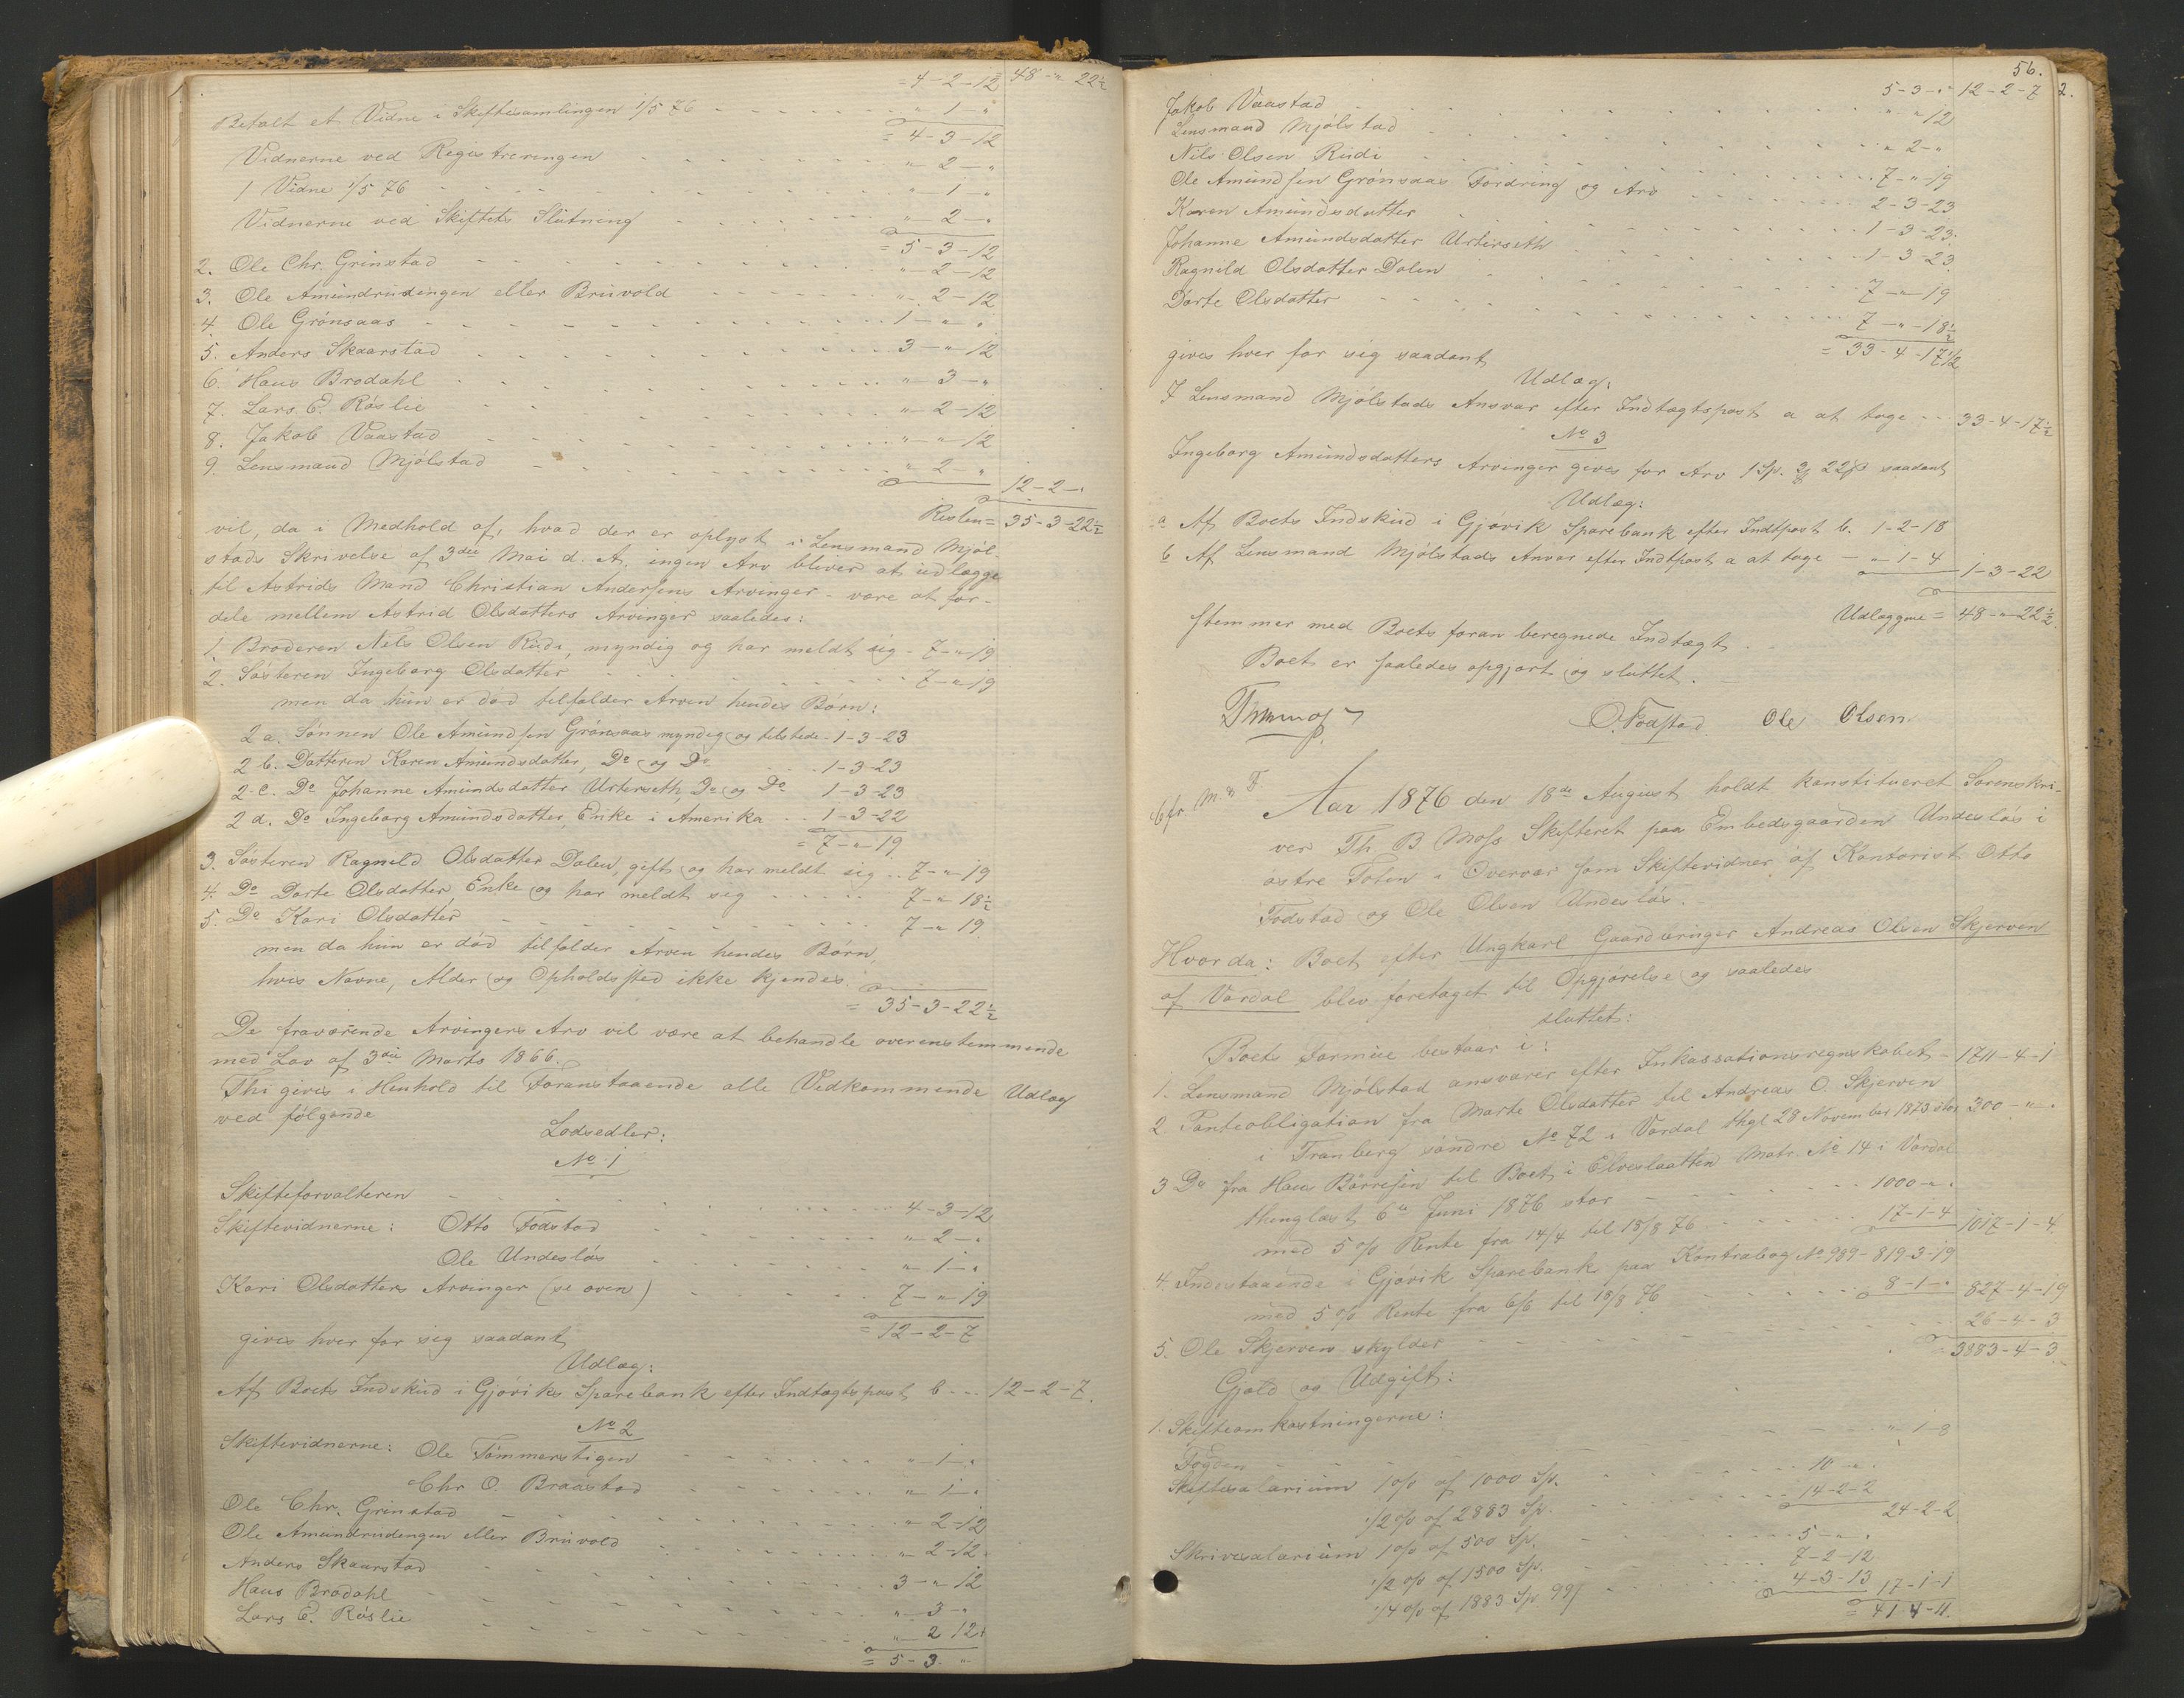 = 4 - 2 - 12 48 - " 22½
Betalt et Vidne i Skiftesamlingen 1/5 76 - - - " 1 - "
= 4 - 3 - 12
Vidnerne ved Registreringen - - - " 2 - "
1 Vidne 1/5 76 - - - " 1 - "
Vidnerne ved Skiftets Slutning - - - " 2 - "
= 5 - 3 - 12
2. Ole Chr. Grinstad - - - " 2 - 12
3. Ole Amundrudengen eller Bruvold - - - " 2 - 12
4. Ole Grönsaas - - - 1 - " "
5. Anders Skaarstad - - - 3 - " 12
6. Hans Brodahl - - - " 3 - "
7. Lars E. Röslie - - - " 2 - 12
8. Jakob Vaastad - - - " " 12
9. Lensmand Mjölstad - - - " 2 " 12 - 2 - "
Resten = 35 - 3 - 22½
vil, da i Medhold af, hvad der er oplyst i Lensmand Mjöl-
stads Skrivelse af 3die Mai d. A. ingen Arv bliver at udlægge
til Astrids Mand Christian Andersens Arvinger - være at for-
dele mellem Astrid Olsdatters Arvinger saaledes:
1. Broderen Nils Olsen Rudi, myndig og har meldt sig - 7 - " 19
2. Sösteren Ingeborg Olsdatter - - - 7 - " 19
men da hun er död tilfalder Arven hendes Börn:
2 a. Sönnen Ole Amundsen Grönsaas myndig og tilstede - 1 - 3 - 23
2 b. Datteren Karen Amundsdatter, Do og Do - - 1 - 3 - 23
2 c. Do Johanne Amundsdatter Urterseth, Do og Do 1 - 3 - 23
2 d. Do Ingeborg Amundsdatter, Enke i Amerika - - 1 - 3 - 22
= 7 - " 19
3. Sösteren Ragnild Olsdatter Dalen, gift og har meldt sig - - 7 - " 19
4. Do Dorte Olsdatter, Enke og har meldt sig - - - 7 - " 18½
5. Do Kari Olsdatter - - - 7 - " 19
men da hun er död tilfalder Arven hendes Börn,
hvis Navne, Alder og Opholdssted ikke kjendes.
= 35 - 3 - 22½
De fraværende Arvingers Arv vil være at behandle overenstemmende
med Lov af 3die Marts 1866.
Thi gives i Henhold til Foranstaaende alle Vedkommende Udlæg
ved fölgende
Lodsedler:
No 1
Skifteforvalteren - - - 4 - 3 - 12
Skiftevidnerne: Otto Fodstad - - - " 2 - "
Ole Undeslös - - - " 1 - "
Kari Olsdatters Arvinger (se oven) - - - 7 - " 19
= 12 - 2 - 7
gives hver for sig saadant
Udlæg:
Af Boets Indskud i Gjöviks Sparebank efter Indtægtspost b - - - 12 - 2 - 7.
No 2
Skiftevidnerne: Ole Tömmerstigen - - - " 1 - "
Chr O. Braastad - - - " 1 - "
Ole Chr. Grinstad - - - " 2 - 12
Ole Amundrudengen eller Bruvold - - - " 2 - 12
Anders Skaarstad - - - 3 - " 12
Hans Brodahl - - - " 3 - "
Lars E. Röslie - - - " 2 12
= 5 - 3 - "
56.
5 - 3 - " 12 - 2 - 7 2.
Jakob Vaastad - - - " " 12
Lensmand Mjölstad - - - " 2 - "
Nils Olsen Rudi - - - 7 - " 19
Ole Amundsen Grönsaas Fordring og Arv - - - 2 - 3 - 23
Karen Amundsdatter - - - 1 - 3 - 23.
Johanne Amundsdatter Urterseth - - - 1 - 3 - 23
Ragnild Olsdatter Dalen - - - 7 - " 19
Dorte Olsdatter - - - 7 - " - 18½
= 33 - 4 - 17 1/2
gives hver for sig saadant
Udlæg:
I Lensmand Mjölstads Ansvar efter Indtægtspost a at tage - - - 33 - 4 - 17½
No 3
Ingeborg Amundsdatters Arvinger gives for Arv 1 Sp. 3 22 β saadant
Udlæg:
a Af Boets Indskud i Gjövik Sparebank efter Indtpost b. 1 - 2 - 18
b Af Lensmand Mjölstads Ansvar efter Indtpost a at tage - " 1 - 4 1 - 3 - 22
Udlæggene = 48 - " 22½
stemmer med Boets foran beregnede Indtægt.
Boet er saaledes opgjort og sluttet.
O. Fodstad. Ole Olsen
Aar 1876 den 18de August holdt konstitueret Sorenskri-
ver Th. B Moss Skifteret paa Embedsgaarden Undeslös i
östre Toten i Overvær som Skiftevidner af Kontorist Otto
Fodstad og Ole Olsen Undeslös.
Hvorda: Boet efter Ungkarl, Gaardbruger Andreas Olsen Skjerven
af Vardal blev foretaget til Opgjörelse og saaledes
sluttet:
Boets Formue bestaar i:
1. Lensmand Mjölstad ansvarer efter Inkassationsregnskabet - 1711 - 4 - 1
2. Panteobligation fra Marte Olsdatter til Andreas O. Skjerven
i Tranberg söndre No 72 i Vardal thgl 28 November 1873 stor 300 - " .
3 Do fra Hans Börresen til Boet i Elveslaatten Matr. No 14 i Vardal
thinglæst 6te Juni 1876 stor - - - 1000 - " .
med 5 o/o Rente fra 14/4 til 18/8 76 - - - 17 - 1 - 4 1017 - 1 - 4
4. Indestaaende i Gjövik Sparebank paa Kontrabog No 989 - 819 - 3 - 19
med 5 o/o Rente fra 6/6 til 18/8 76 - - - 8 - 1 - " 827 - 4 - 19
5. Ole Skjerven skylder - - - 26 - 4 - 3
3883 - 4 - 3
Gjæld og Udgift:
1. Skifteomkostningerne:
Fogden - - - " 1 - 8
Skiftesalarium 1 o/o af 1000 Sp. - - - 10 - " .
1/2 o/o af 2883 Sp. - - - 14 - 2 - 2 24 - 2 - 2
Skrivesalarium 1 o/o af 500 Sp. - - - 5 - " .
1/2 o/o af 1500 Sp. - - - 7 - 2 - 12
1/4 o/o af 1883 Sp 99 - - - 4 - 3 - 13 17 - 1 - 1
= 41 4 - 11.